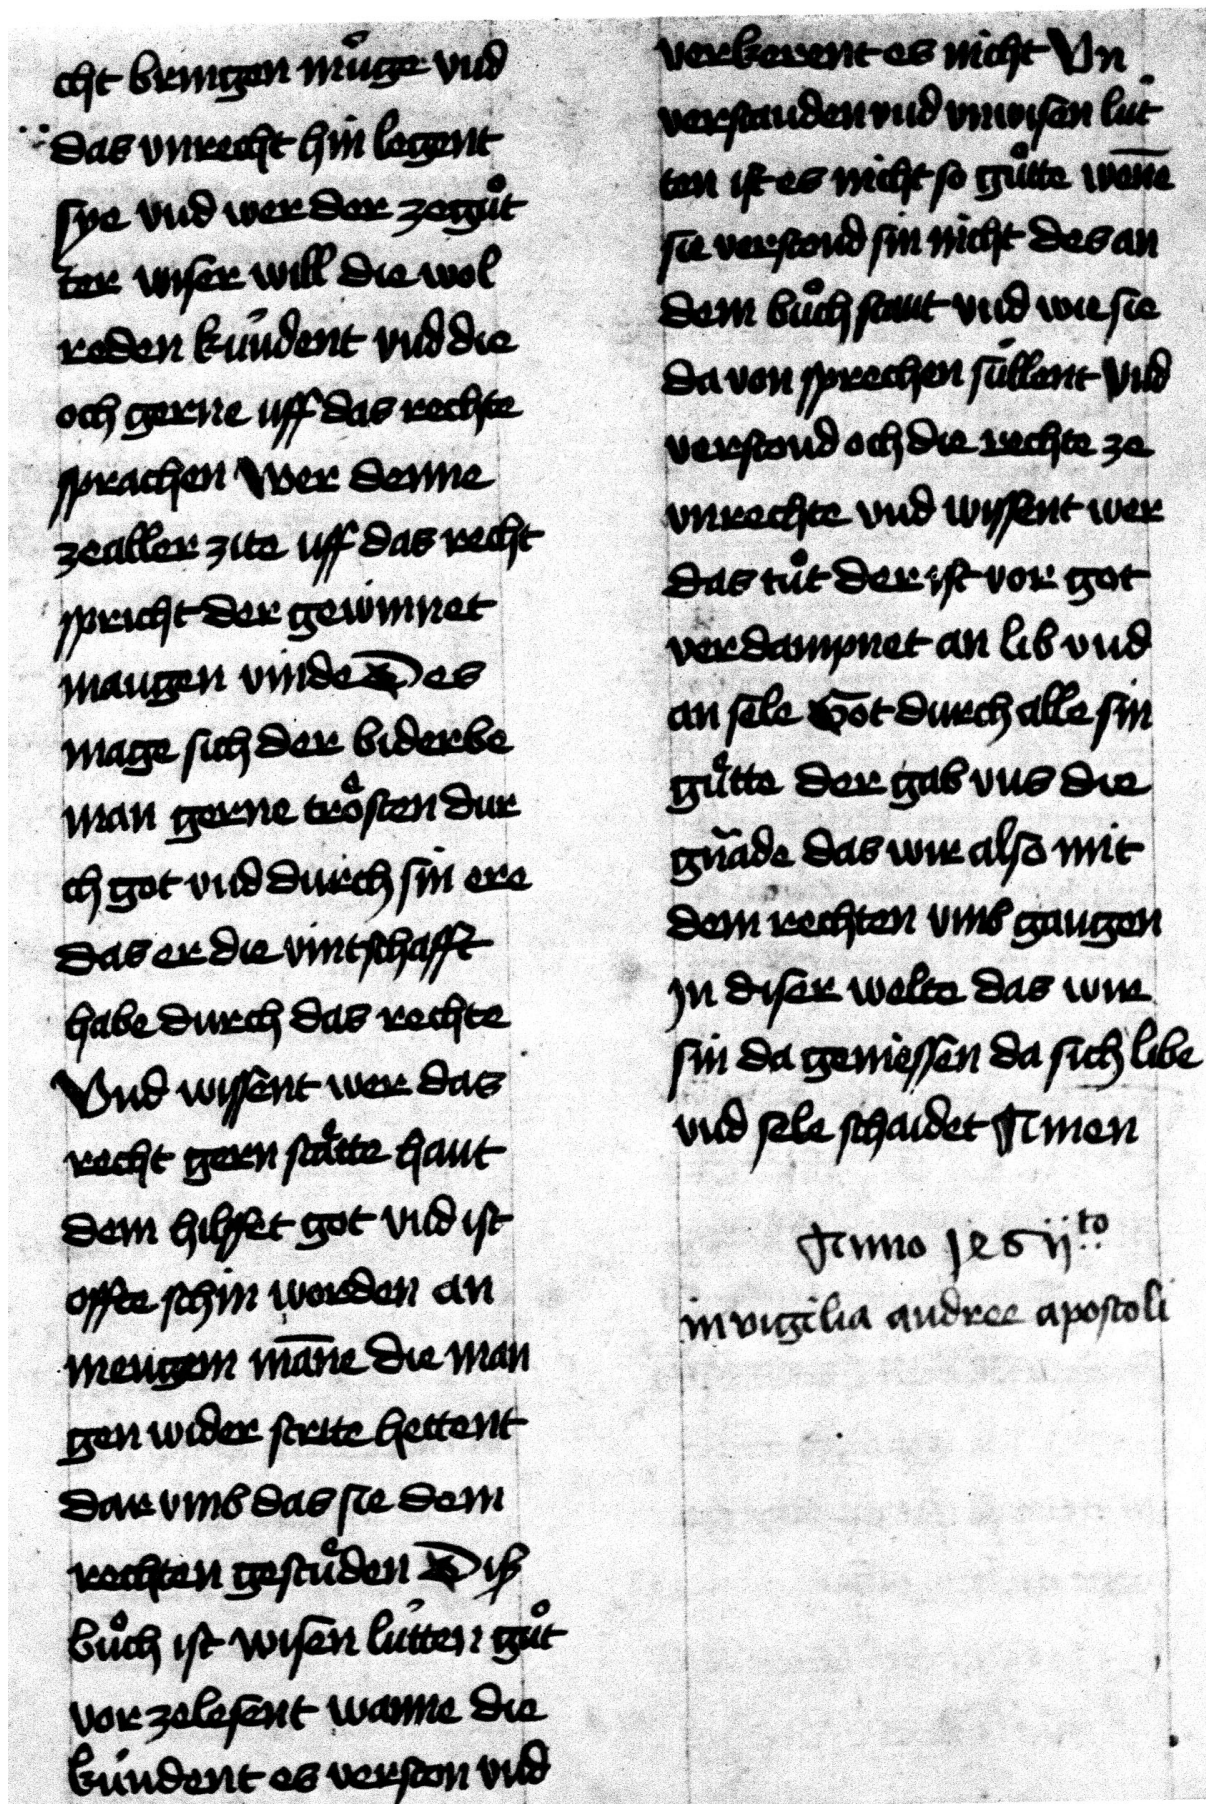 cht bringen mu̇ge vnd
das vnrecht hin legent
sye vnd wer der zegůt
ter vnser will die wol
reden kúndent vnd die
och gerne uff das rechte
sprachen Wer denne
zealler zite uff das recht
spricht der gewinnet
maugen vinde Des
mage sich der biderbe
man gerne trösten dur
ch got vnd durch sin ere
das er die vintschafft
habe durch das rechte
Vnd wissent wer das
recht gern stätte haut
dem hilffet got vnd ist
offte schin worden an
mengem man̄e die man
gen wider strite hettent
dar vmb das sie dem
rechten gestu̇den Diß
bůch ist wisen lútten gůt
vor zelesent wanne die
kúndent es verston vnd
verkerent es nicht Vn
verstanden vnd vnwisen lút
ten ist es nicht so gůtte wen̄e
sie verstond sin nicht des an
dem bůch staut vnd wie sie
da von sprechen súllent Vnd
verstond och die rechte ze
vnrechte vnd wissent wer
das tůt der ist vor got
verdampnet an lib vnd
an sele Got durch alle sin
gůtte der gab vns die
gnade das wir also mit
dem rechten vmb gaugen
jn diser welte das wir
sin da geniessen da sich libe
vnd sele schaidet Amen
Anno
in vigilia andree apostoli